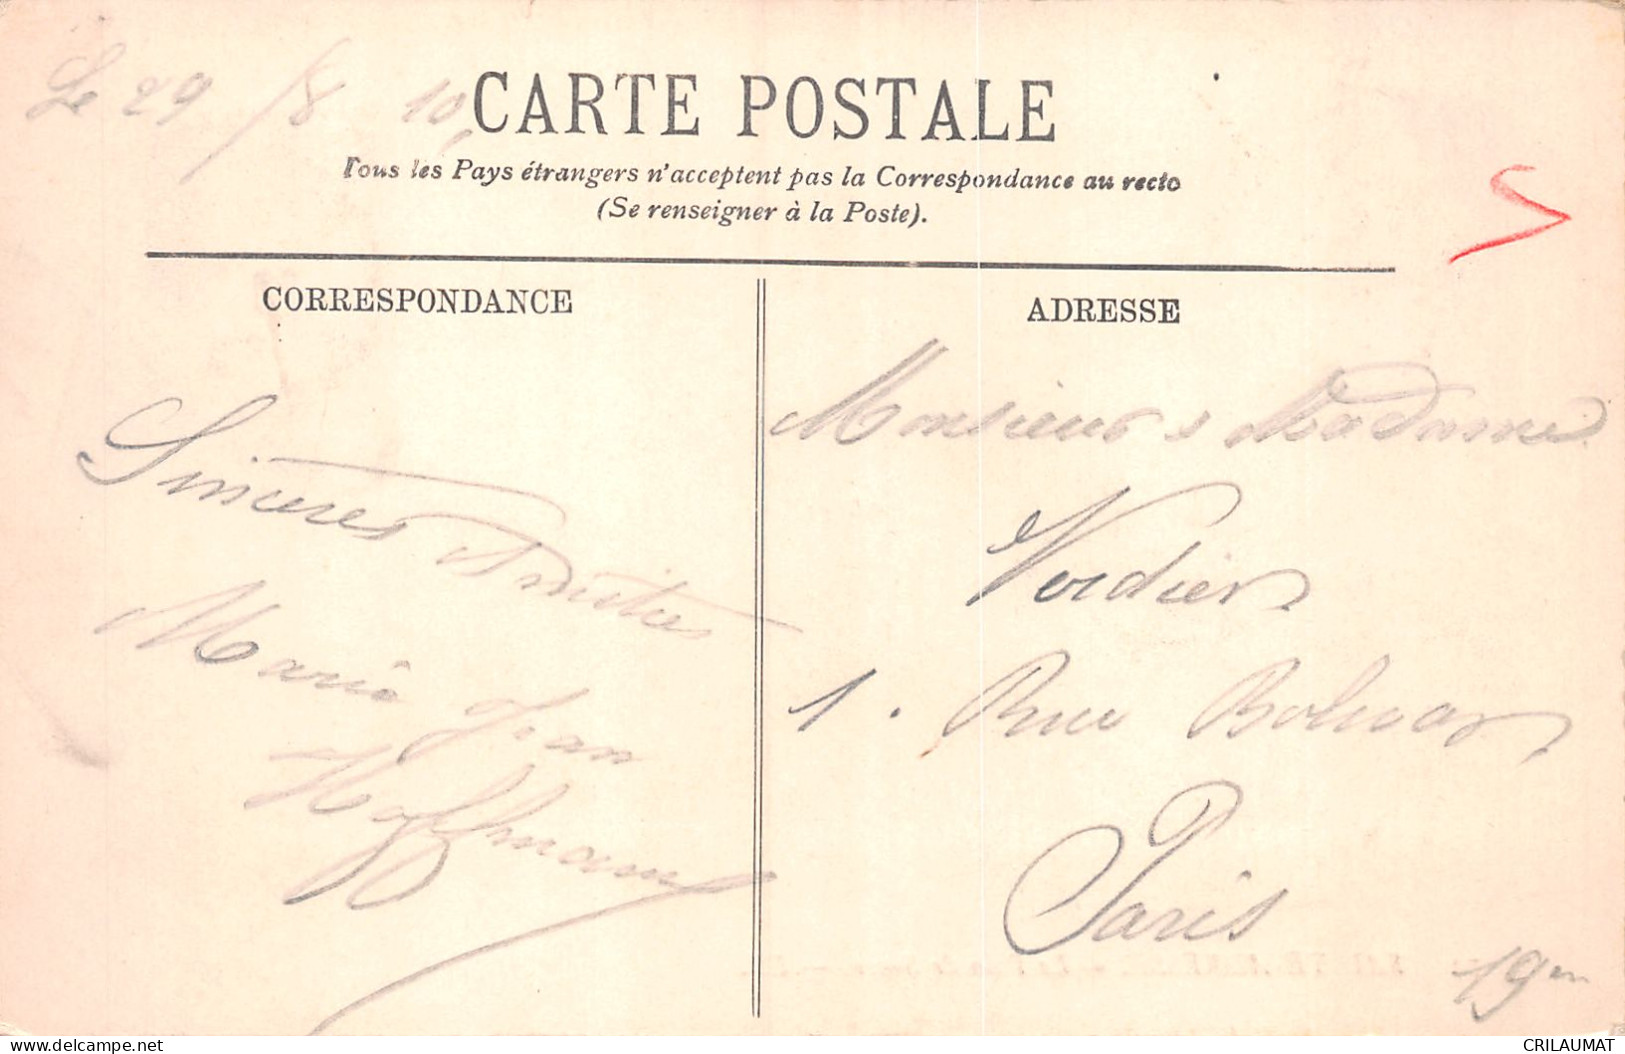 Le 29/8 10,
CARTE POSTALE
Tous les Pays étrangers n'acceptent pas la Correspondance au recto
(Se renseigner à la Poste).
CORRESPONDANCE
Sincères Amitiés
Marie Jean
Hoffmann
ADRESSE
Monsieur & Madame
Verdier
1. Rue Bolivar
Paris
19em
www.delcampe.net
CRILAUMAT